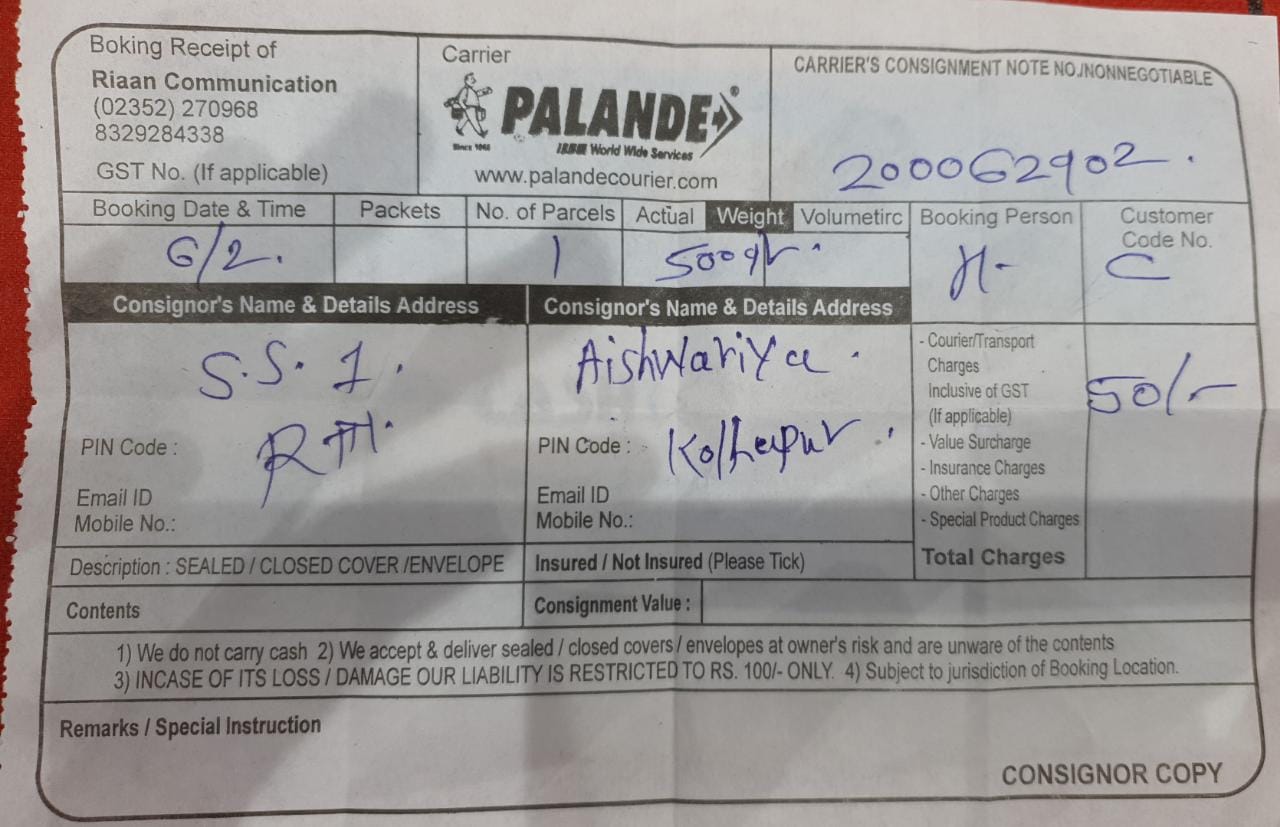 Boking Receipt of
Riaan Communication
(02352) 270968
8329284338
GST No. (If applicable)
Carrier
PALANDE
Since 1968
World Wide Services
www.palandecourier.com
CARRIER'S CONSIGNMENT NOTE NO./NONNEGOTIABLE
200062902.
Booking Date & Time
6/2.
Packets
No. of Parcels
1
Actual Weight Volumetirc
500gr.
Booking Person
H-
Customer
Code No.
C
Consignor's Name & Details Address
S.S. 1.
PIN Code :
Email ID
Mobile No.:
Consignor's Name & Details Address
Aishwariya.
PIN Code : Kolhapur.
Email ID
Mobile No.:
- Courier/Transport
Charges
Inclusive of GST
(If applicable)
- Value Surcharge
- Insurance Charges
- Other Charges
- Special Product Charges
Total Charges
50/-
Description : SEALED / CLOSED COVER /ENVELOPE
Insured / Not Insured (Please Tick)
Contents
Consignment Value :
1) We do not carry cash 2) We accept & deliver sealed / closed covers / envelopes at owner's risk and are unware of the contents
3) INCASE OF ITS LOSS / DAMAGE OUR LIABILITY IS RESTRICTED TO RS. 100/- ONLY. 4) Subject to jurisdiction of Booking Location.
Remarks / Special Instruction
CONSIGNOR COPY